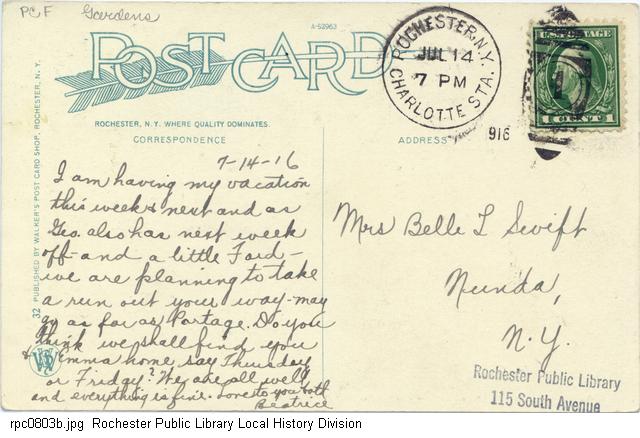 PCF Gardens
A-52963
POST CARD
ROCHESTER, N.Y. WHERE QUALITY DOMINATES.
CORRESPONDENCE
ADDRESS
ROCHESTER, N.Y.
JUL 14
7 PM
CHARLOTTE STA.
916
U.S. POSTAGE
1 CENT 1
32 PUBLISHED BY WALKER'S POST CARD SHOP, ROCHESTER, N.Y.
7-14-16
I am having my vacation
this week & next and as
Geo. also has next week
off - and a little Ford -
we are planning to take
a run out your way - may
go as far as Portage. Do you
think we shall find you
& Emma home say Thursday
or Friday? We are all well
and everything is fine. Love to you both
Beatrice
Mrs Belle L Swift
Nunda,
N.Y.
Rochester Public Library
115 South Avenue
rpc0803b.jpg Rochester Public Library Local History Division